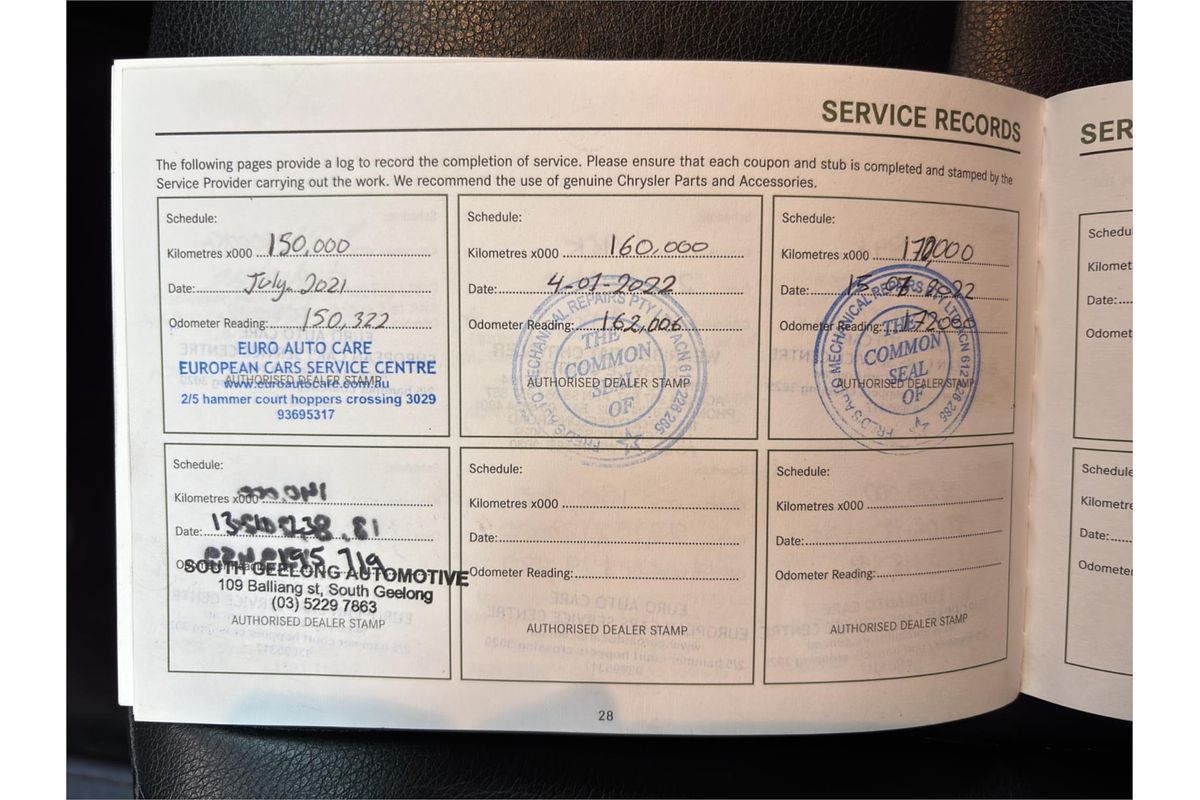 SERVICE RECORDS
The following pages provide a log to record the completion of service. Please ensure that each coupon and stub is completed and stamped by the
Service Provider carrying out the work. We recommend the use of genuine Chrysler Parts and Accessories.
Schedule:
Kilometres x000 150,000
Date: July 2021
Odometer Reading: 150,322
EURO AUTO CARE
EUROPEAN CARS SERVICE CENTRE
AUTHORISED DEALER STAMP
www.euroautocare.com.au
2/5 hammer court hoppers crossing 3029
93695317
Schedule:
Kilometres x000 160,000
Date: 4-01-2022
Odometer Reading: 162,006
AUTO MECHANICAL REPAIRS PTY
THE
COMMON
SEAL
OF
AUTHORISED DEALER STAMP
Schedule:
Kilometres x000
Date: 2022
Odometer Reading:
FRED'S AUTO MECHANICAL REPAIRS PTY LTD ACN 612 226 285
THE
COMMON
SEAL
OF
AUTHORISED DEALER STAMP
Schedule:
Kilometres x000
Date:
SOUTH GEELONG AUTOMOTIVE
109 Balliang st, South Geelong
(03) 5229 7863
AUTHORISED DEALER STAMP
Schedule:
Kilometres x000
Date:
Odometer Reading:
AUTHORISED DEALER STAMP
Schedule:
Kilometres x000
Date:
Odometer Reading:
AUTHORISED DEALER STAMP
28
SER
Schedu
Kilomet
Date:
Odomet
Schedule
Kilometre
Date:
Odometer